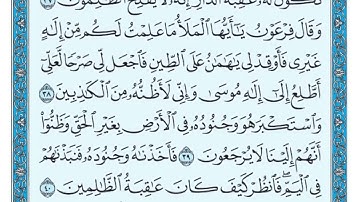 تَكُونُ لَهُۥ عَٰقِبَةُ ٱلدَّارِۖ إِنَّهُۥ لَا يُفۡلِحُ ٱلظَّٰلِمُونَ ٣٧
وَقَالَ فِرۡعَوۡنُ يَٰٓأَيُّهَا ٱلۡمَلَأُ مَا عَلِمۡتُ لَكُم مِّنۡ إِلَٰهٍ
غَيۡرِي فَأَوۡقِدۡ لِي يَٰهَٰمَٰنُ عَلَى ٱلطِّينِ فَٱجۡعَل لِّي صَرۡحٗا لَّعَلِّيٓ
أَطَّلِعُ إِلَىٰٓ إِلَٰهِ مُوسَىٰ وَإِنِّي لَأَظُنُّهُۥ مِنَ ٱلۡكَٰذِبِينَ ٣٨
وَٱسۡتَكۡبَرَ هُوَ وَجُنُودُهُۥ فِي ٱلۡأَرۡضِ بِغَيۡرِ ٱلۡحَقِّ وَظَنُّوٓاْ
أَنَّهُمۡ إِلَيۡنَا لَا يُرۡجَعُونَ ٣٩ فَأَخَذۡنَٰهُ وَجُنُودَهُۥ فَنَبَذۡنَٰهُمۡ
فِي ٱلۡيَمِّۖ فَٱنظُرۡ كَيۡفَ كَانَ عَٰقِبَةُ ٱلظَّٰلِمِينَ ٤٠